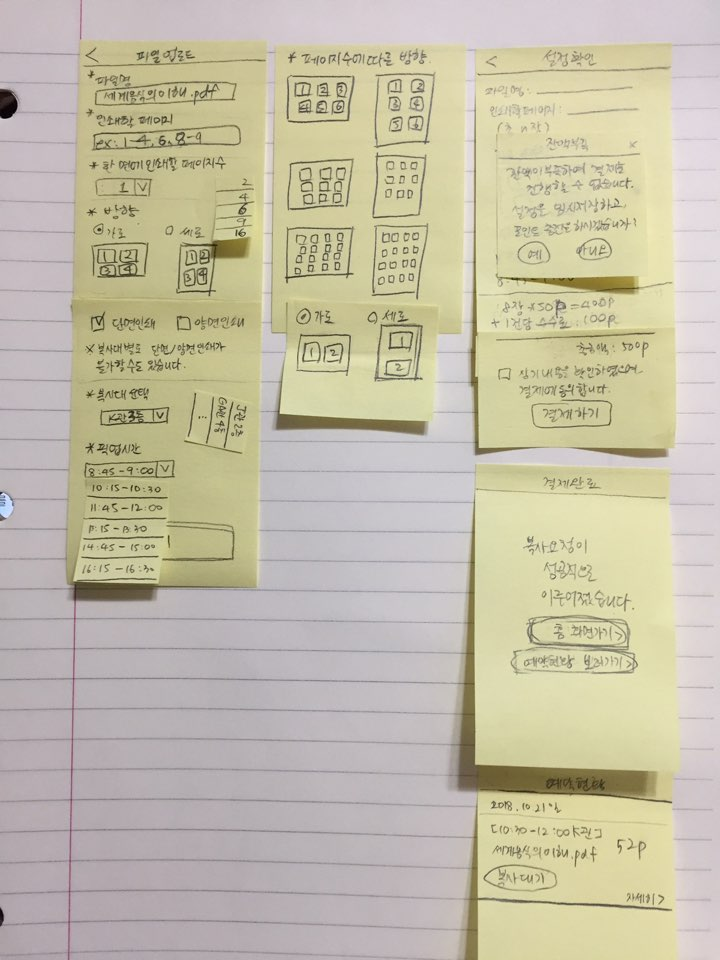 < 파일업로드
* 파일명
세계음식의이해.pdf
* 인쇄할 페이지
ex: 1-4, 6, 8-9
* 한 면에 인쇄할 페이지수
1 V
2
4
6
9
16
* 방향
가로 세로
1 2
3 4
1 2
3 4
단면인쇄 양면인쇄
× 복사대별로 단면/양면인쇄가
불가할 수도 있습니다.
* 복사대 선택
K관 3층 V
J관 2층
* 픽업시간
8:45-9:00 V
10:15-10:30
11:45-12:00
14:45-15:00
16:15-16:30
* 페이지수에 따른 방향
1 2 3
4 5 6
1 2
3 4
5 6
가로 세로
1 2
1
2
< 설정확인
파일명:
인쇄할페이지:
(총 n장)
잔액부족 ×
잔액이 부족하여 결제를
진행할 수 없습니다.
설정을 임시저장하고,
포인트 충전을 하시겠습니까?
예 아니오
8장 × 50p = 400p
+ 1건당 수수료: 100p
총금액: 500p
상기 내용을 확인하였으며
결제에 동의합니다.
결제하기
결제완료
복사요청이
성공적으로
이루어졌습니다.
홈 화면가기 >
예약현황 보러가기 >
예약현황
2018.10.21일
[10:30-12:00 K관]
세계음식의이해.pdf 52p
복사대기
자세히 >